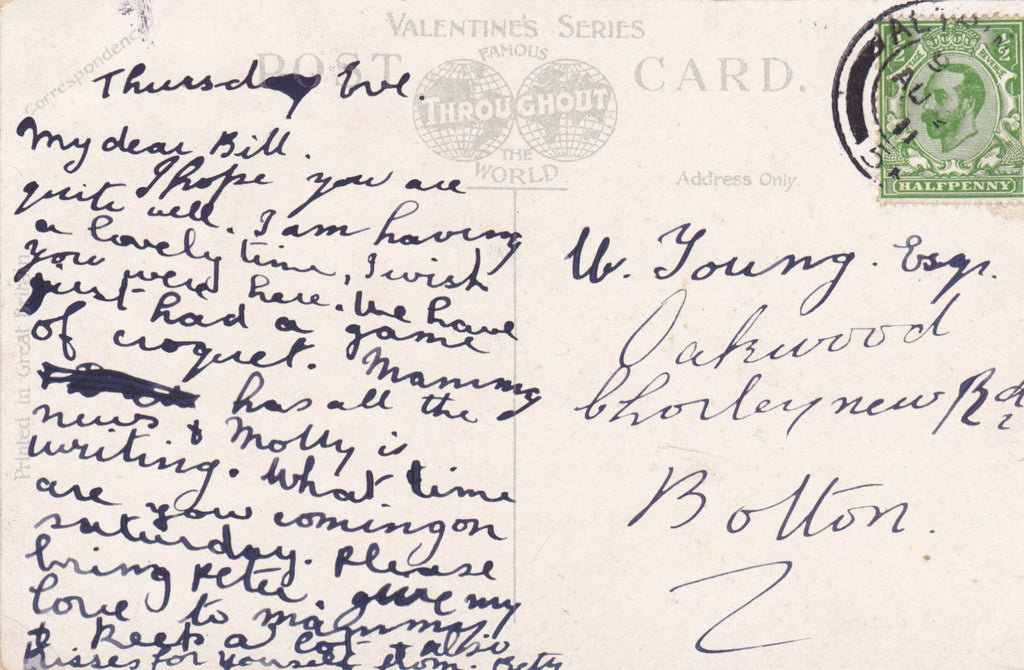 VALENTINE'S SERIES
FAMOUS
POST CARD.
THROUGHOUT
THE
WORLD
Correspondence
Address Only.
Printed in Great Britain
HALFPENNY
Thursday Eve.
My dear Bill.
I hope you are
quite well. I am having
a lovely time, I wish
you were here. We have
just had a game
of croquet. Mammy
has all the
news & Molly is
writing. What time
are you coming on
saturday. Please
bring Peter. give my
love to mammy
& keep a lot also
kisses for yourself from. Betty
W. Young. Esqr.
Oakwood
Chorley new Rd
Bolton.